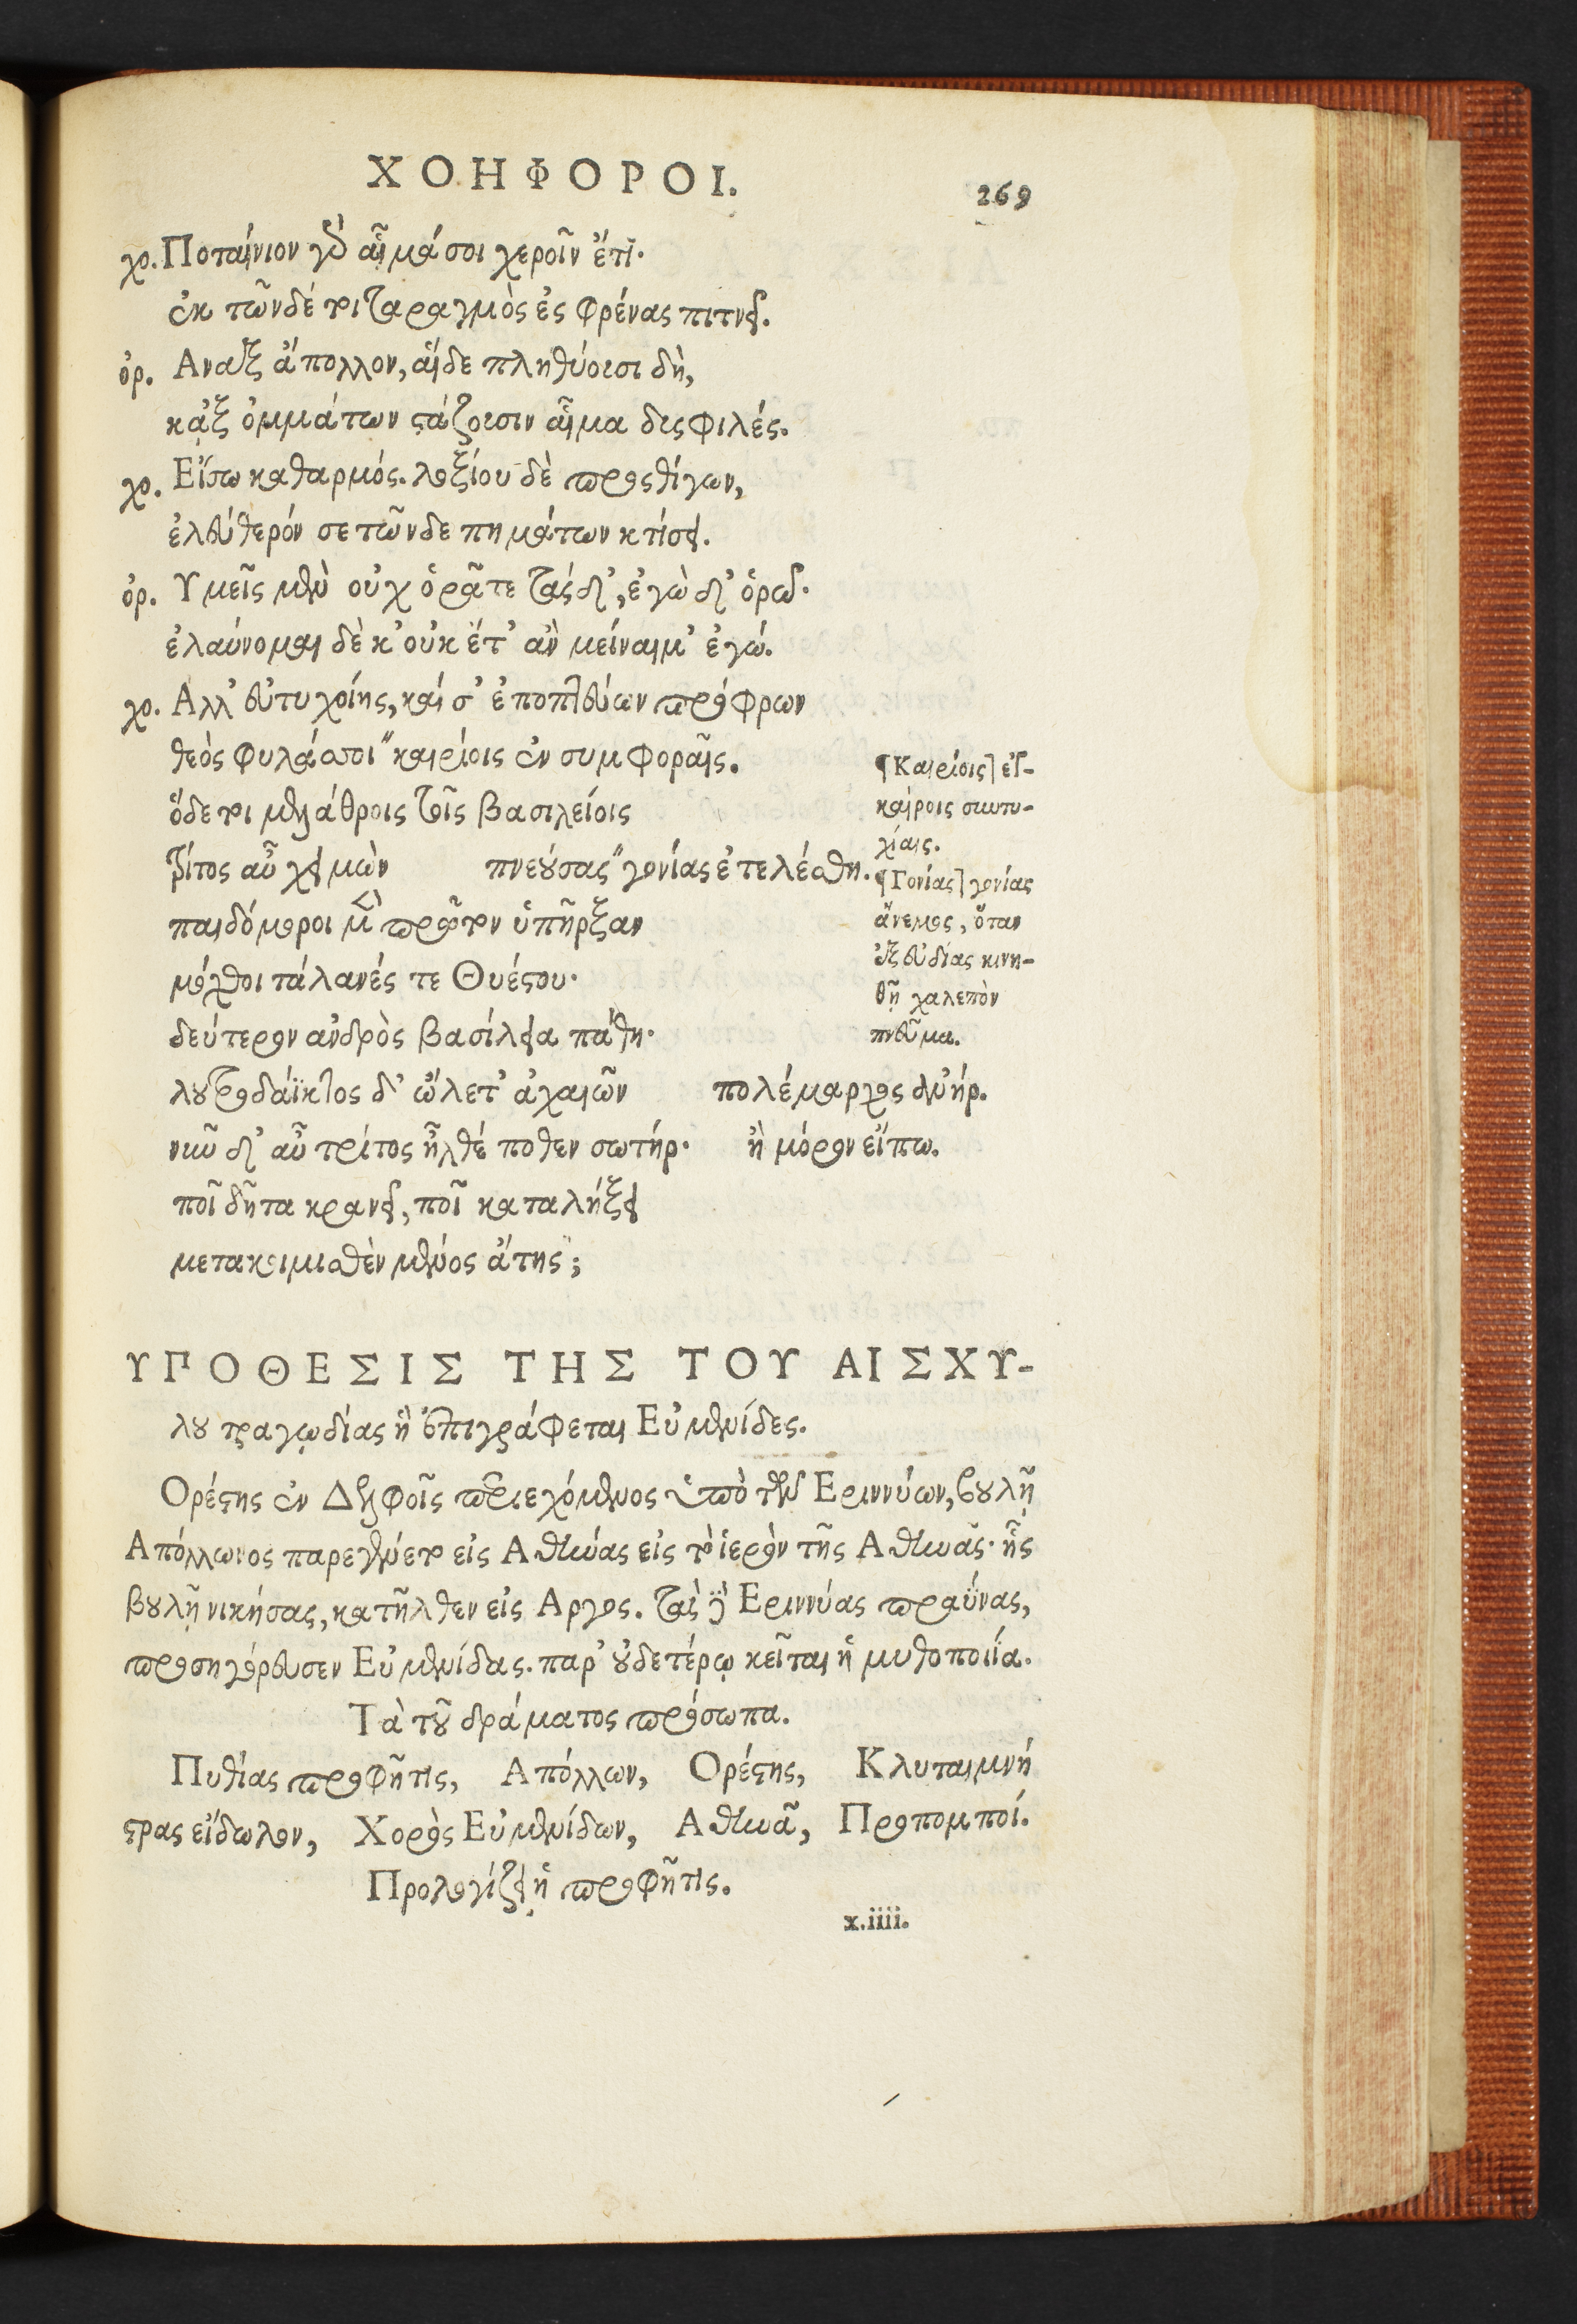 ΧΟΗΦΟΡΟΙ.
269
χο. Ποταίνιον γὰρ αἷμά σοι χεροῖν ἔτι·
ἐκ τῶνδέ τοι ταραγμὸς ἐς φρένας πιτνεῖ.
ὀρ. Αναξ ἄπολλον, αἵδε πληθύουσι δὴ,
κᾀξ ὀμμάτων στάζουσιν αἷμα δυσφιλές.
χο. Εἴσω καθαρμός. λοξίου δὲ προσθίγων,
ἐλεύθερόν σε τῶνδε πημάτων κτίσει.
ὀρ. Υμεῖς μὲν οὐχ ὁρᾶτε τάσδ', ἐγὼ δ' ὁρῶ·
ἐλαύνομαι δὲ κ' οὐκ ἔτ' ἂν μείναιμ' ἐγώ.
χο. Αλλ' εὐτυχοίης, καί σ' ἐποπτεύων πρόφρων
θεὸς φυλάσσοι "καιρίοις ἐν συμφοραῖς.
ὅδε τοι μελάθροις τοῖς βασιλείοις
τρίτος αὖ χειμὼν πνεύσας "γονίας ἐτελέσθη.
παιδόμοροι μὲν πρῶτον ὑπῆρξαν
μόχθοι τάλανές τε Θυέστου·
δεύτερον ἀνδρὸς βασίλεια πάθη·
λουτροδάϊκτος δ' ὤλετ' ἀχαιῶν πολέμαρχος ἀνήρ.
νῦν δ' αὖ τρίτος ἦλθέ ποθεν σωτήρ· ἢ μόρον εἴπω.
ποῖ δῆτα κρανεῖ, ποῖ καταλήξει
μετακοιμισθὲν μένος ἄτης;
¶Καιρίοις] εὐ-
καίροις συντυ-
χίαις.
¶Γονίας] γονίας
ἄνεμος, ὅταν
ἐξ εὐδίας κινη-
θῇ χαλεπὸν
πνεῦμα.
ΥΠΟΘΕΣΙΣ ΤΗΣ ΤΟΥ ΑΙΣΧΥ-
λου τραγῳδίας ἣ ἐπιγράφεται Εὐμενίδες.
Ορέστης ἐν Δελφοῖς περιεχόμενος ὑπὸ τῶν Εριννύων, βουλῇ
Απόλλωνος παρεγένετο εἰς Αθήνας εἰς τὸ ἱερὸν τῆς Αθηνᾶς· ἧς
βουλῇ νικήσας, κατῆλθεν εἰς Αργος. τὰς δὲ Εριννύας πραΰνας,
προσηγόρευσεν Εὐμενίδας. παρ' οὐδετέρῳ κεῖται ἡ μυθοποιΐα.
Τὰ τοῦ δράματος πρόσωπα.
Πυθίας προφῆτις, Απόλλων, Ορέστης, Κλυταιμνή
στρας εἴδωλον, Χορὸς Εὐμενίδων, Αθηνᾶ, Προπομποί.
Προλογίζει ἡ προφῆτις.
x.iiii.